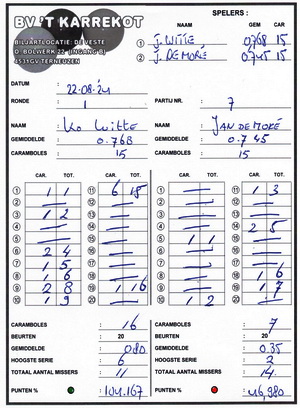 BV 'T KARREKOT
BILJARTLOCATIE: DE VESTE
D. BOLWERK 22 (INGANG B)
4531GV TERNEUZEN
SPELERS :
NAAM GEM CAR
1 J. WITTE 0.768 15
2 J. DE MORÉ 0.745 15
DATUM 22-08-24
RONDE 1 PARTIJ NR. 7
NAAM : Ko Witte NAAM : JAN DE MORÉ
GEMIDDELDE : 0.768 GEMIDDELDE : 0.745
CARAMBOLES : 15 CARAMBOLES : 15
CAR. TOT. CAR. TOT. CAR. TOT. CAR. TOT.
1 1 1 11 6 15 1 — 11 1 3
2 — 12 — 2 — 12 —
3 1 2 13 — 3 — 13 —
4 — 14 — 4 — 14 2 5
5 — 15 — 5 1 1 15 —
6 2 4 16 — 6 — 16 —
7 1 5 17 — 7 — 17 —
8 1 6 18 — 8 — 18 1 6
9 2 8 19 1 16 9 — 19 1 7
10 1 9 20 — 10 1 2 20 —
CARAMBOLES : 16 CARAMBOLES : 7
BEURTEN : 20 BEURTEN : 20
GEMIDDELDE : 0.80 GEMIDDELDE : 0.35
HOOGSTE SERIE : 6 HOOGSTE SERIE : 2
TOTAAL AANTAL MISSERS : 11 TOTAAL AANTAL MISSERS : 14
PUNTEN % : 104.167 PUNTEN % : 46,980